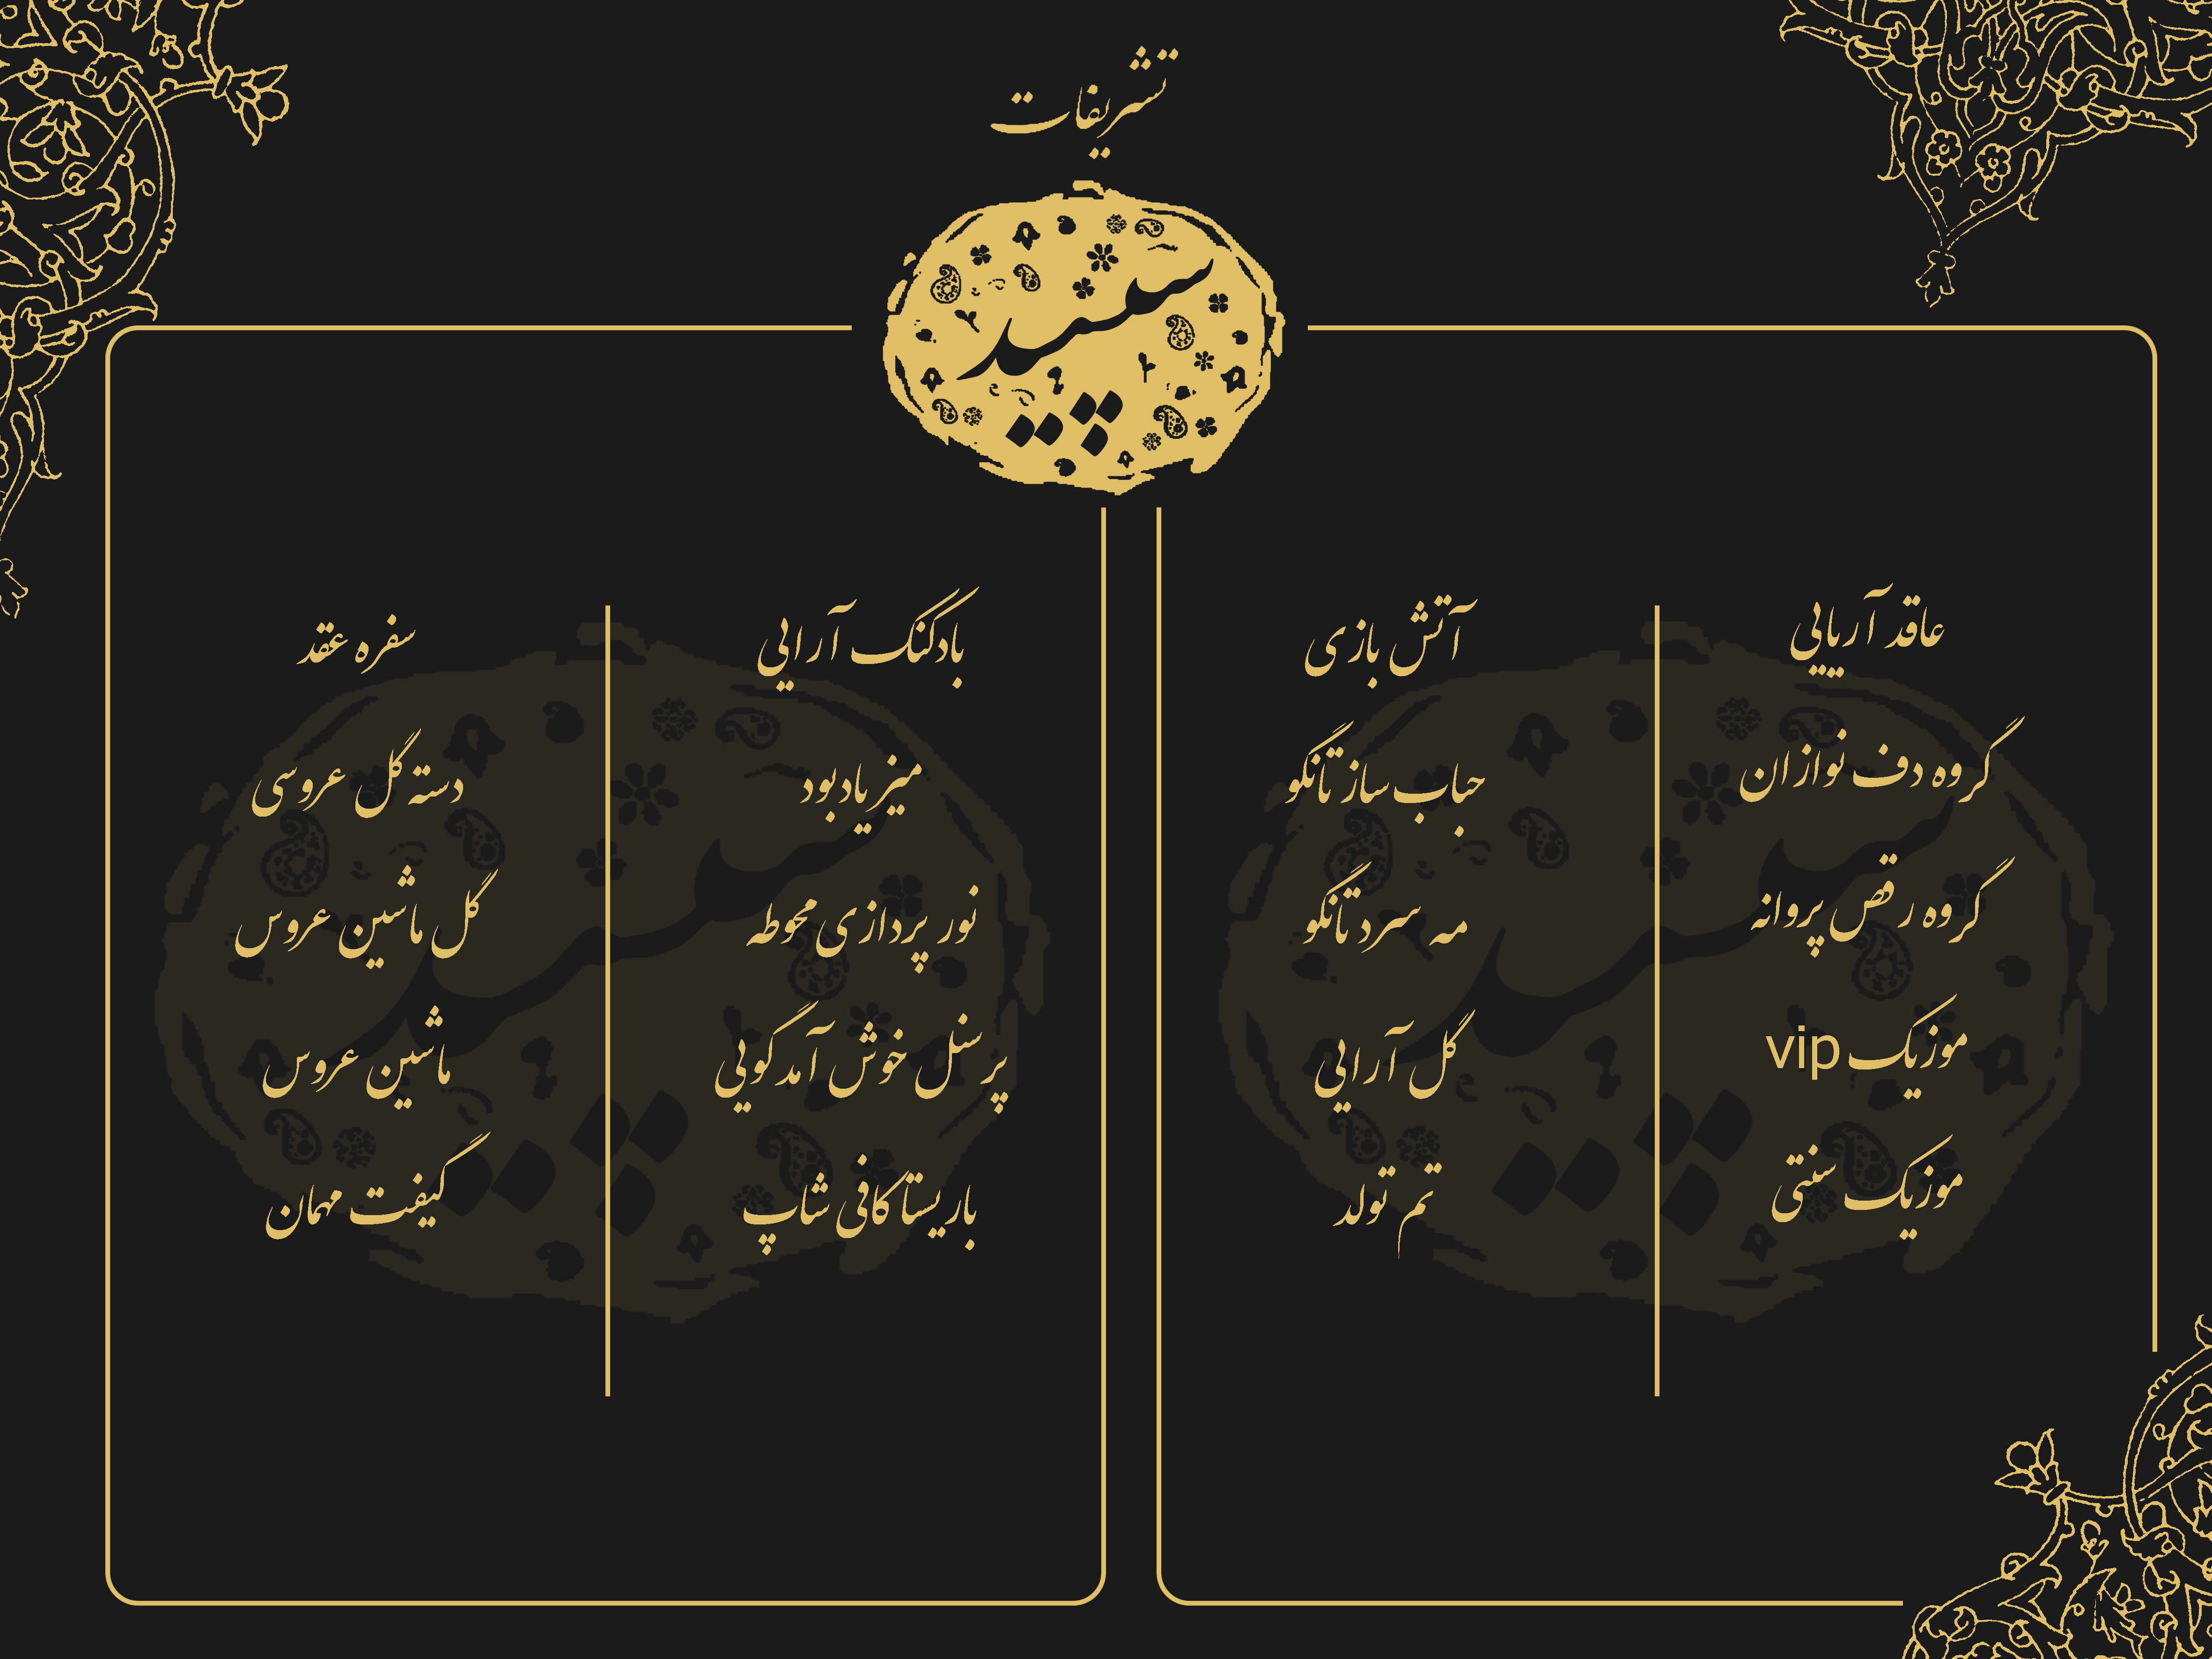 تشریفات
سپید
عاقد آریایی
گروه دف نوازان
گروه رقص پروانه
موزیک vip
موزیک سنتی
آتش بازی
حباب ساز تانگو
مه سرد تانگو
گل آرایی
تم تولد
بادکنک آرایی
میز یادبود
نور پردازی محوطه
پرسنل خوش آمدگویی
باریستا کافی شاپ
سفره عقد
دسته گل عروسی
گل ماشین عروس
ماشین عروس
گیفت مهمان